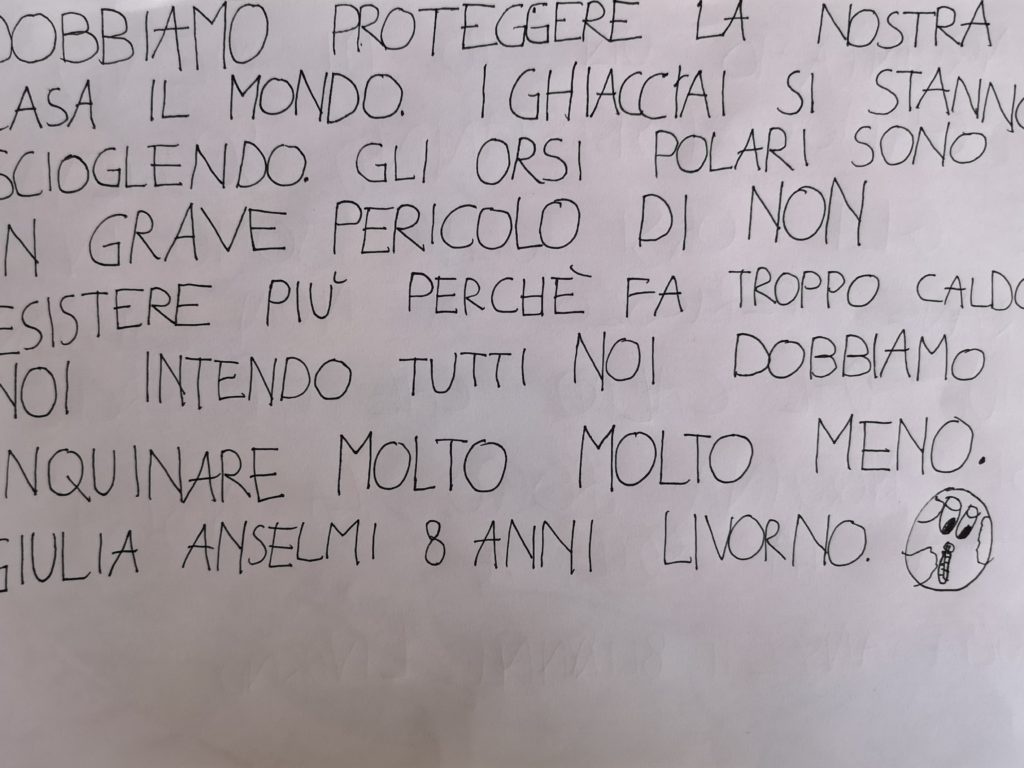 DOBBIAMO PROTEGGERE LA NOSTRA
CASA IL MONDO. I GHIACCIAI SI STANNO
SCIOGLENDO. GLI ORSI POLARI SONO
IN GRAVE PERICOLO DI NON
ESISTERE PIÙ PERCHÈ FA TROPPO CALDO
NOI INTENDO TUTTI NOI DOBBIAMO
INQUINARE MOLTO MOLTO MENO.
GIULIA ANSELMI 8 ANNI LIVORNO.